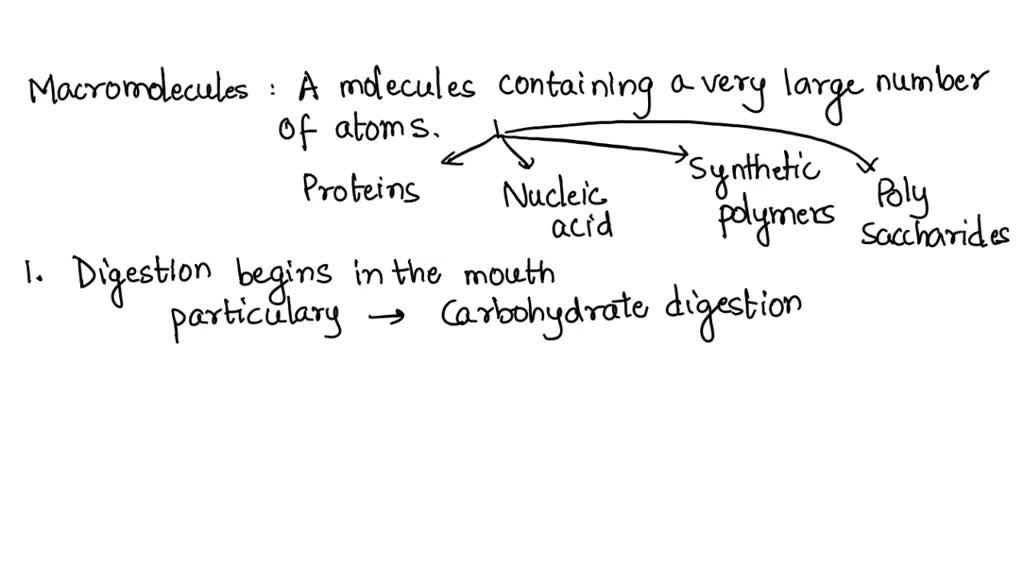 Macromolecules : A molecules containing a very large number
of atoms.
Proteins
Nucleic
acid
Synthetic
polymers
Poly
saccharides
1. Digestion begins in the mouth
particulary → Carbohydrate digestion